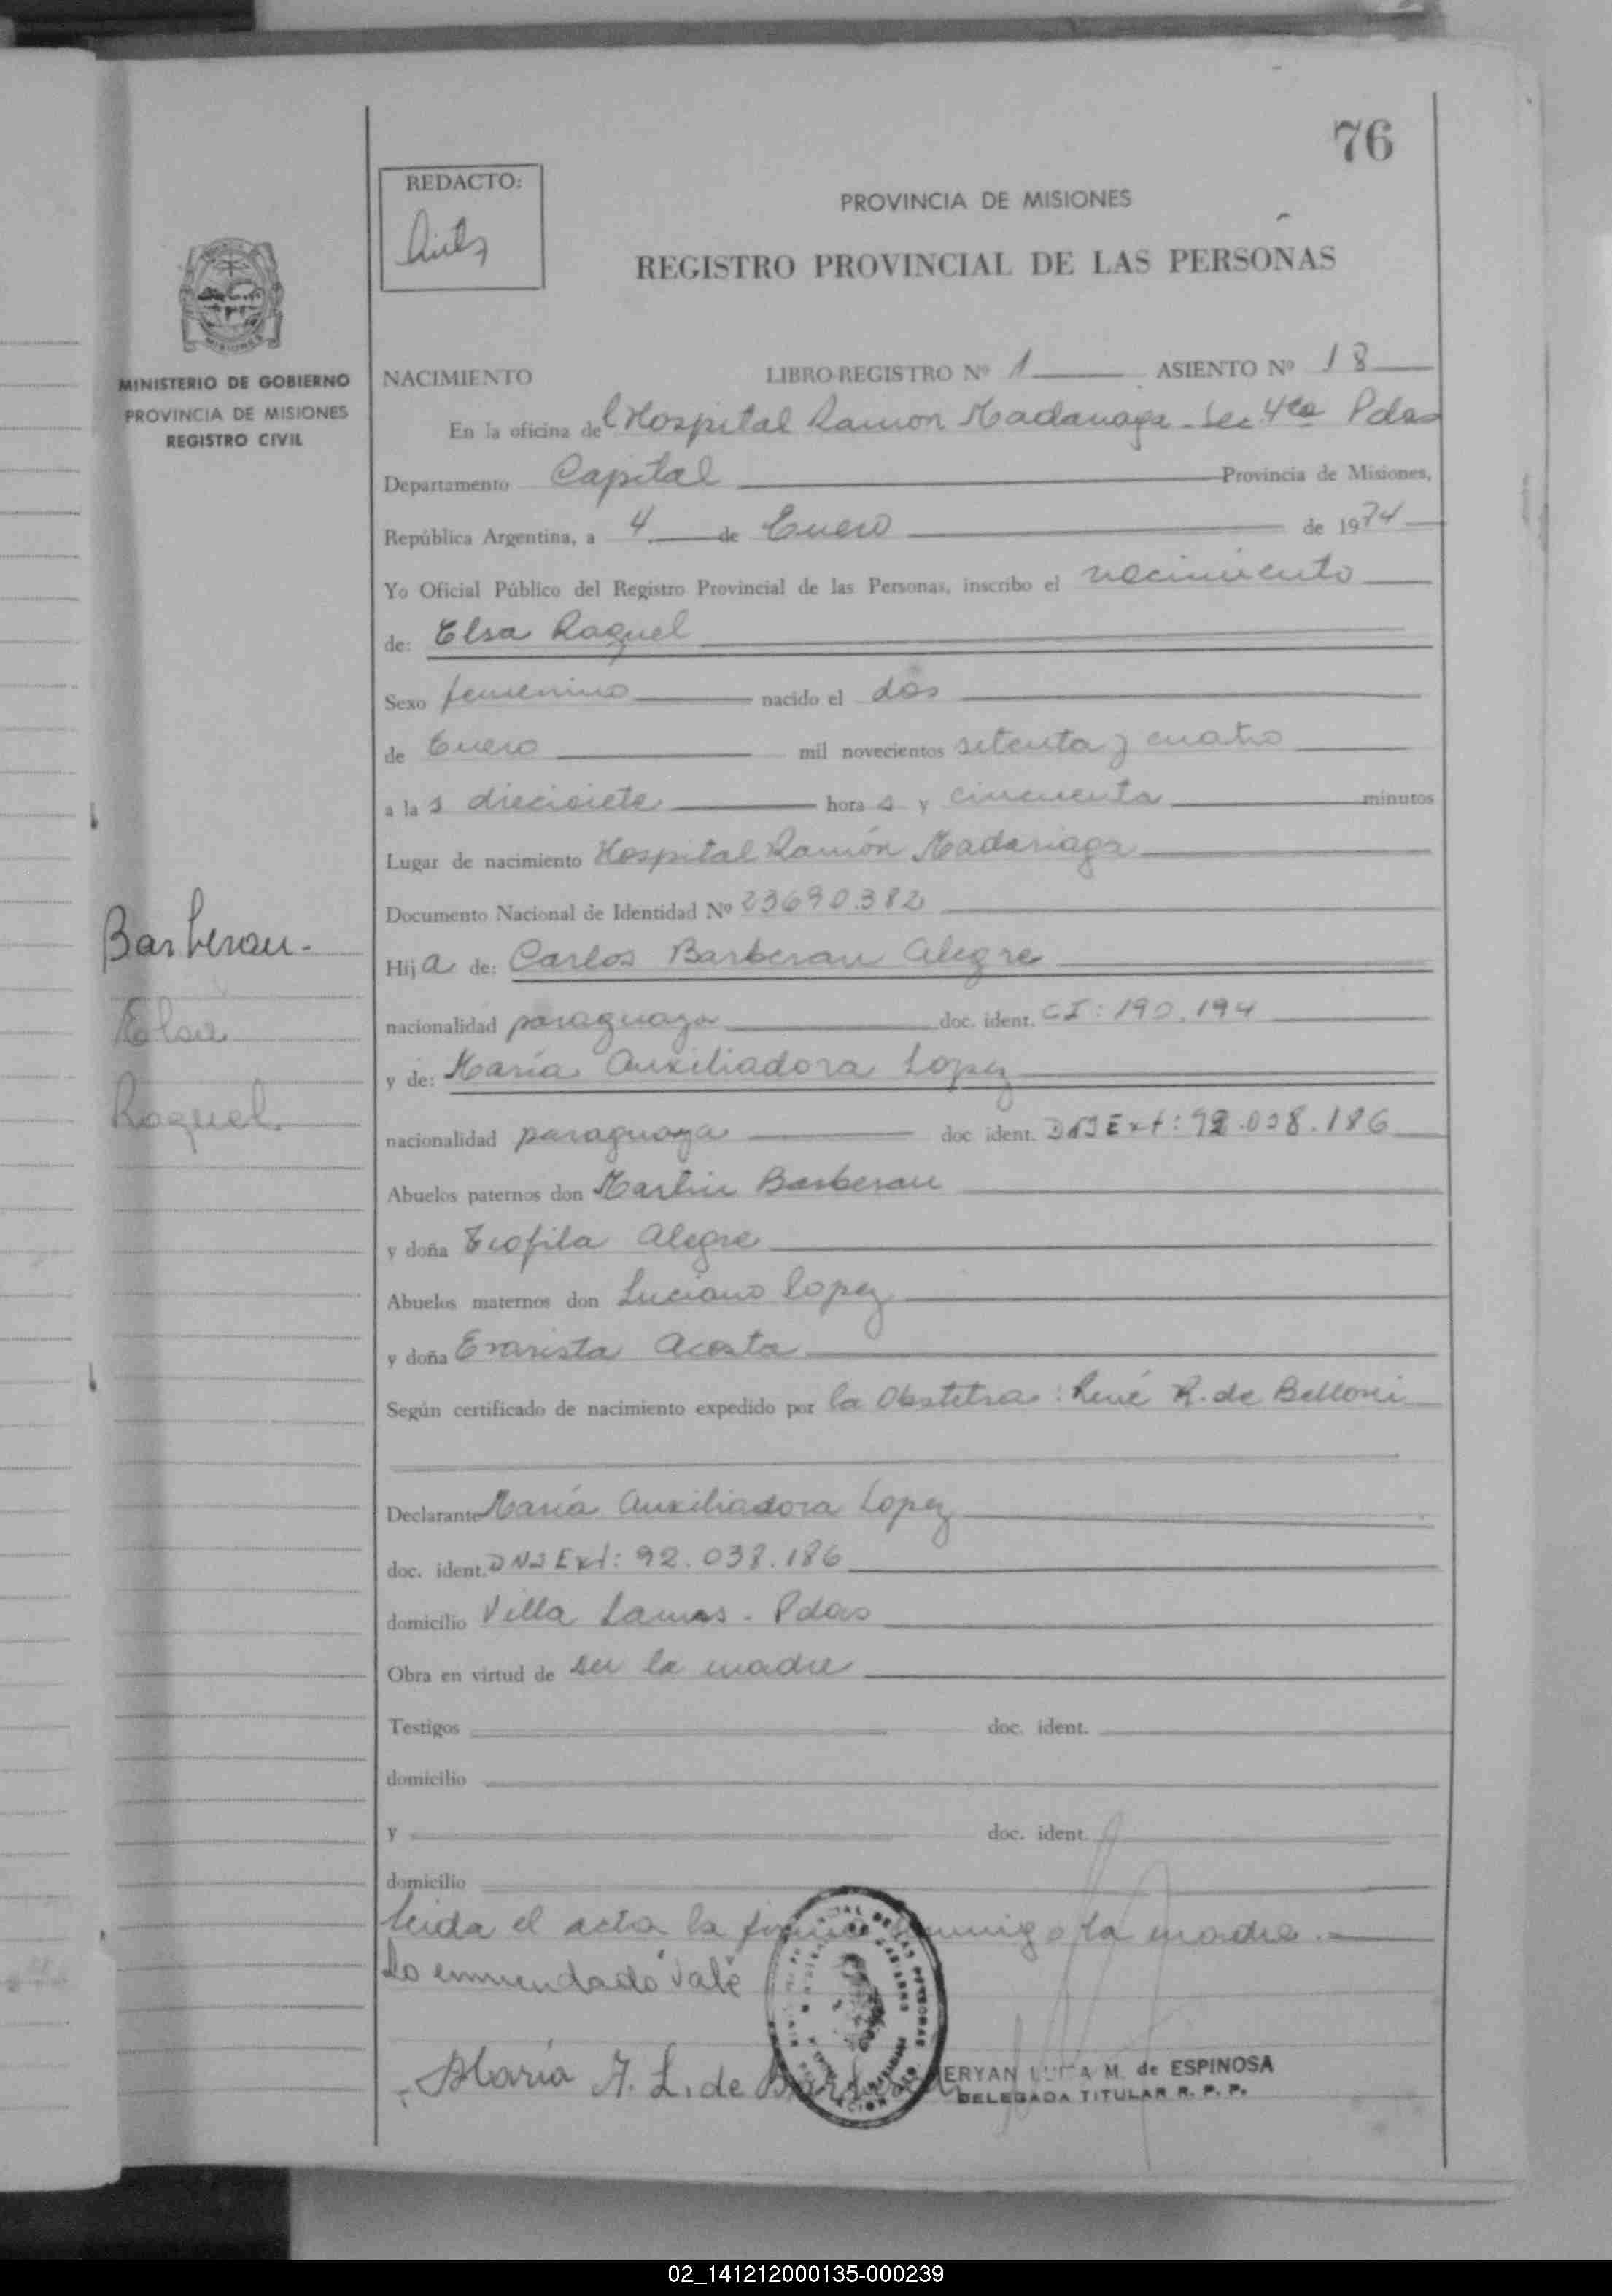 76
REDACTO:
PROVINCIA DE MISIONES
REGISTRO PROVINCIAL DE LAS PERSONAS
MISIONES
MINISTERIO DE GOBIERNO
PROVINCIA DE MISIONES
REGISTRO CIVIL
NACIMIENTO LIBRO-REGISTRO Nº 1 ASIENTO Nº 18
En la oficina del Hospital Ramon Madariaga - Sec 4ta Pdas
Departamento Capital Provincia de Misiones,
República Argentina, a 4 de Enero de 1974
Yo Oficial Público del Registro Provincial de las Personas, inscribo el nacimiento
de: Elsa Raquel
Sexo femenino nacido el dos
de Enero mil novecientos setenta y cuatro
a las diecisiete horas y cincuenta minutos
Lugar de nacimiento Hospital Ramón Madariaga
Documento Nacional de Identidad Nº 23690.382
Barberan.
Hija de: Carlos Barberan Alegre
Elsa
nacionalidad paraguaya doc. ident. CI: 190.194
y de: Maria Auxiliadora Lopez
Raquel.
nacionalidad paraguaya doc. ident. DNI Ext: 92.038.186
Abuelos paternos don Martin Barberan
y doña Teofila Alegre
Abuelos maternos don Luciano Lopez
y doña Evarista Acosta
Según certificado de nacimiento expedido por la Obstetra: René R. de Belloni
Declarante Maria Auxiliadora Lopez
doc. ident. DNI Ext: 92.038.186
domicilio Villa Lanus - Pdas
Obra en virtud de ser la madre
Testigos doc. ident.
domicilio
y doc. ident.
domicilio
Leida el acta la firma conmigo la madre.
Lo enmendado "Vale"
Maria A. L. de Barberan
LUISA M. de ESPINOSA
DELEGADA TITULAR R. P. P.
02_141212000135-000239